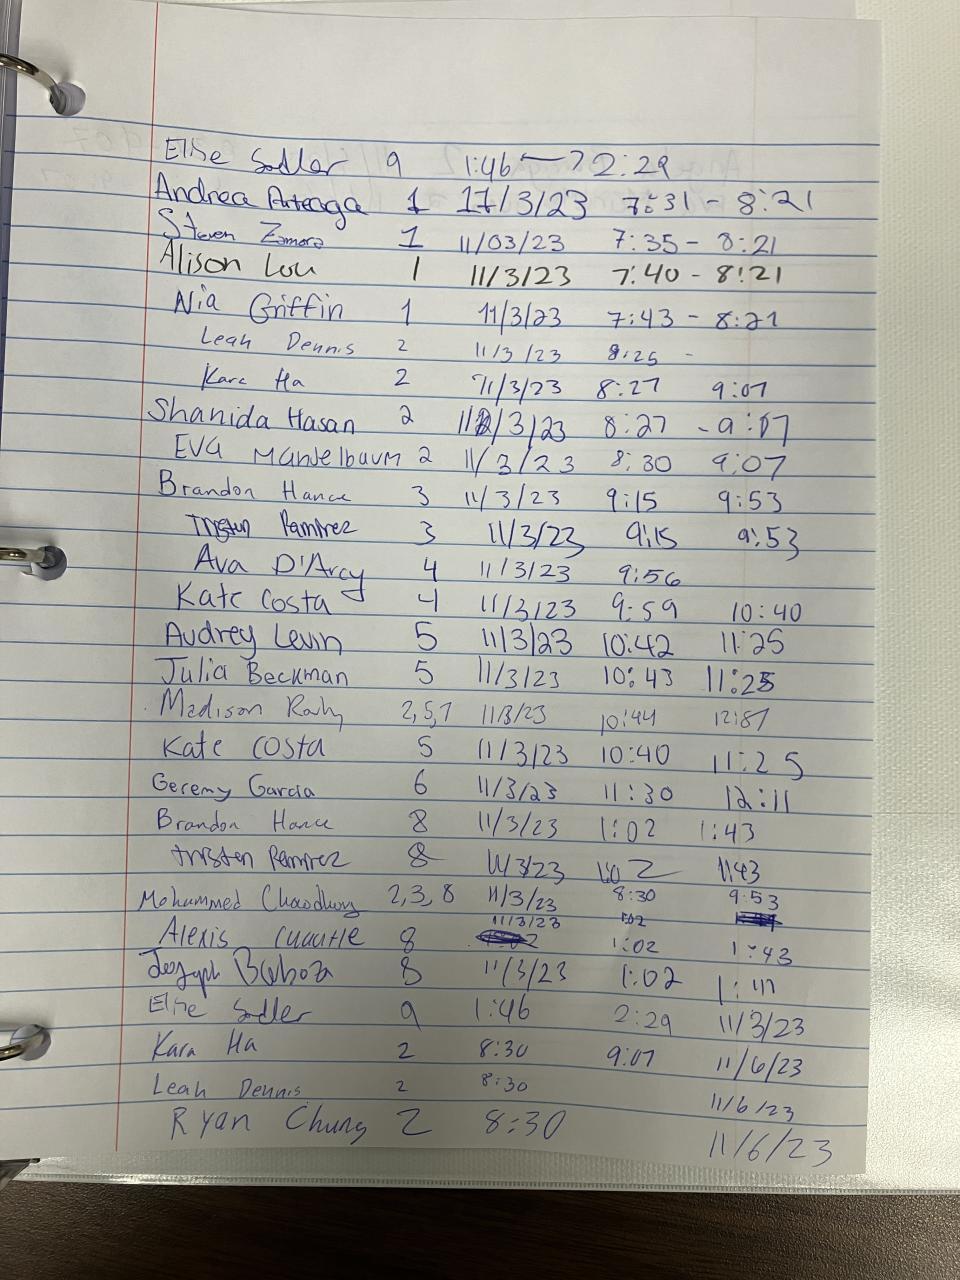 Elise Sadler 9 1:46 → 2:29
Andrea Arteaga 1 11/3/23 7:31 - 8:21
Steven Zamora 1 11/03/23 7:35 - 8:21
Alison Lou 1 11/3/23 7:40 - 8:21
Nia Griffin 1 11/3/23 7:43 - 8:21
Leah Dennis 2 11/3/23 8:25 -
Kara Ha 2 11/3/23 8:27 9:07
Shanida Hasan 2 11/3/23 8:27 - 9:07
EVA Mandelbaum 2 11/3/23 8:30 9:07
Brandon Hance 3 11/3/23 9:15 9:53
Tristen Ramirez 3 11/3/23 9:15 9:53
Ava D'Arcy 4 11/3/23 9:56
Kate Costa 4 11/3/23 9:59 10:40
Audrey Levin 5 11/3/23 10:42 11:25
Julia Beckman 5 11/3/23 10:43 11:25
Madison 2,5,7 11/3/23 10:44
Kate Costa 5 11/3/23 10:40 11:25
Geremy Garcia 6 11/3/23 11:30 12:11
Brandon Hance 8 11/3/23 1:02 1:43
Tristen Ramirez 8 11/3/23 1:02 1:43
Mohammed Chaodhury 2,3,8 11/3/23 8:30 9:53
11/3/23 1:02
Alexis Cuautle 8 1:02 1:43
Joseph Barboza 8 11/3/23 1:02
Elise Sadler 9 1:46 2:29 11/3/23
Kara Ha 2 8:30 9:07 11/6/23
Leah Dennis 2 8:30 11/6/23
Ryan Chung 2 8:30 11/6/23